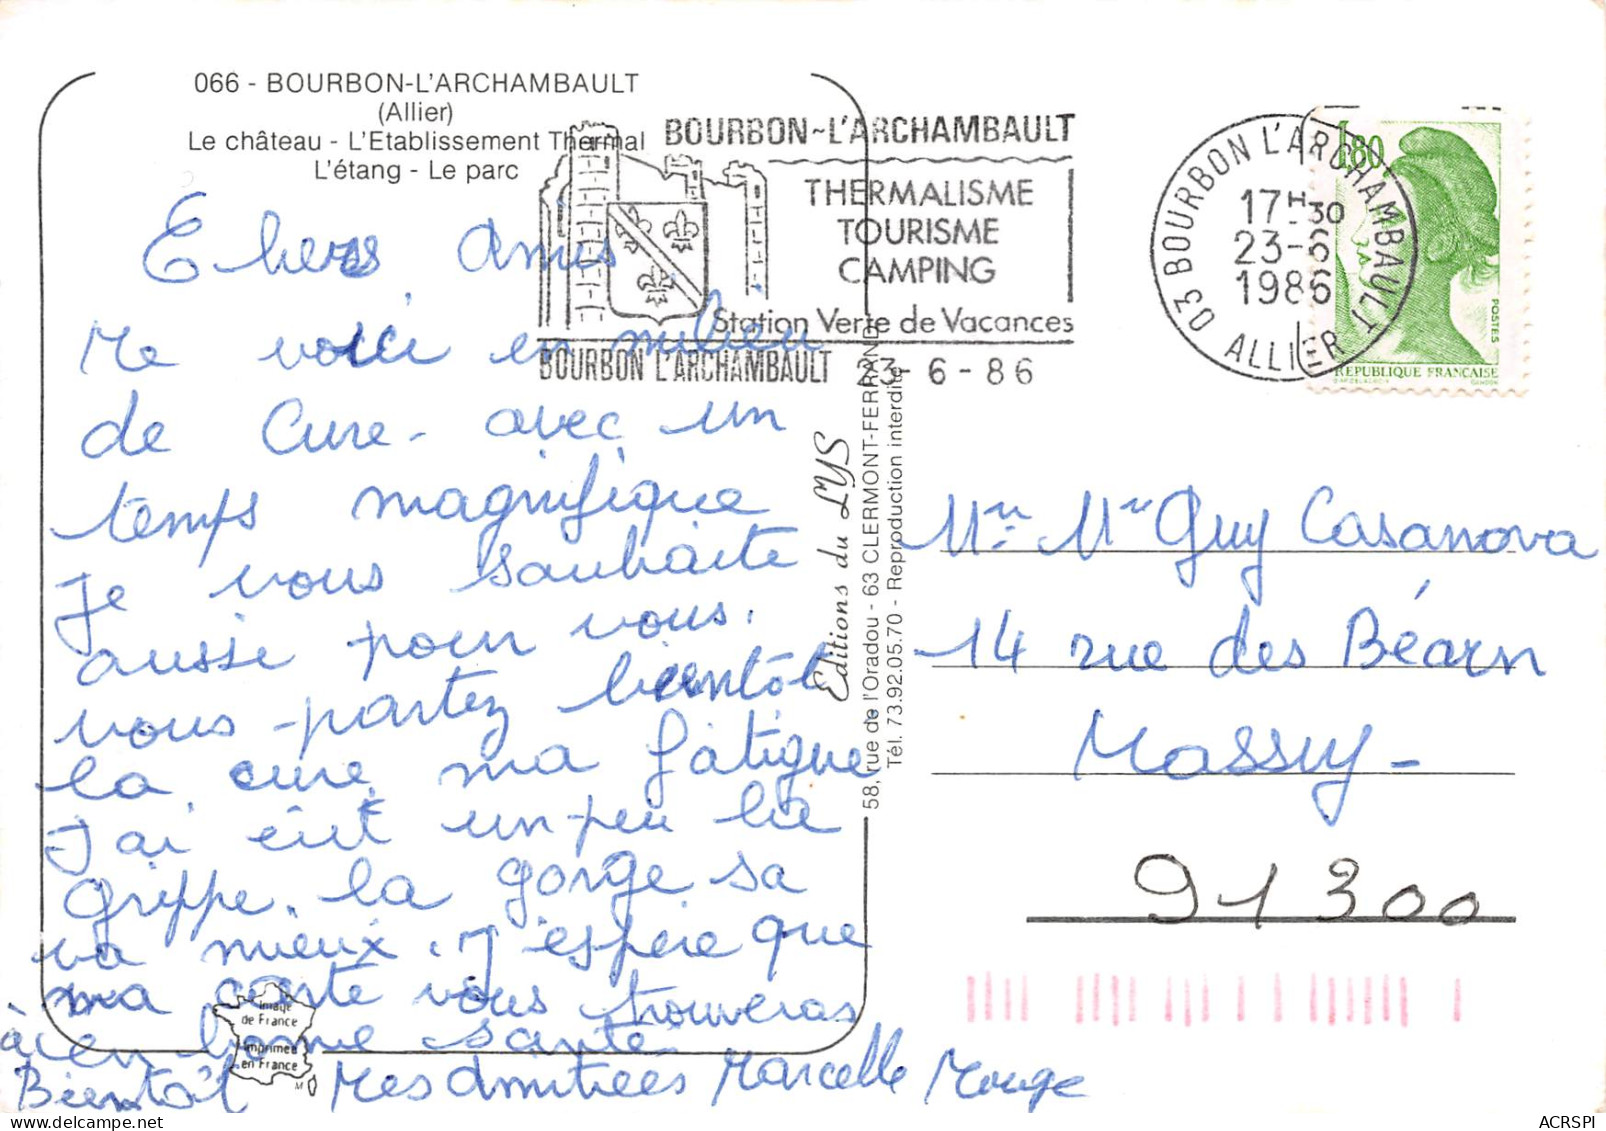 066 - BOURBON-L'ARCHAMBAULT
(Allier)
Le château - L'Etablissement Thermal
L'étang - Le parc
BOURBON~L'ARCHAMBAULT
THERMALISME
TOURISME
CAMPING
Station Verte de Vacances
BOURBON L'ARCHAMBAULT 23-6-86
03 BOURBON L'ARCHAMBAULT
17H30
23-6
1986
ALLIER
1,80
POSTES
REPUBLIQUE FRANCAISE
GANDON
Chers Amis
Me voici en milieu
de Cure - avec un
temps magnifique
Je vous souhaite
aussi pour vous.
vous partez bientôt
la cure ma fatigue
J'ai eut un peu la
grippe. la gorge sa
va mieux. J'espère que
ma carte vous trouveras
en bonne santé
à
Bientôt Mes Amitiées Marcelle Mouge
Image
de France
Imprimée
en France
Editions du LYS
58, rue de l'Oradou - 63 CLERMONT-FERRAND
Tél. 73.92.05.70 - Reproduction interdite
Mr. Mr Guy Casanova
14 rue des Béarn
Massy -
91300
ACRSPI